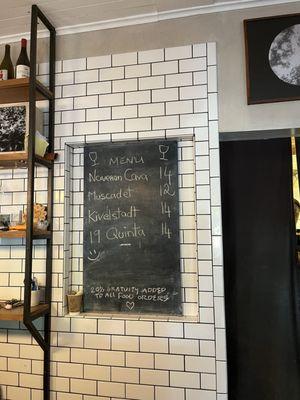 MENU
Cava 14
Muscadet 12
Kivelstadt 14
19 Quinta 14
20% GRATUITY ADDED
TO ALL FOOD ORDERS